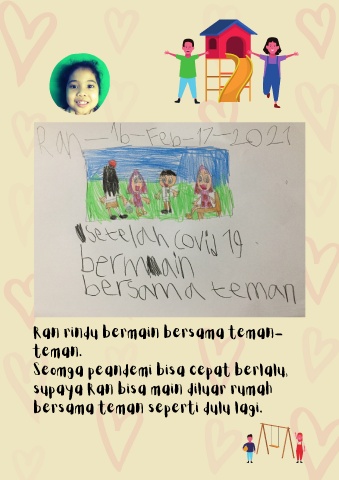 Ran-16-Feb-17-2021
setelah covid 19
bermain
bersama teman
Ran rindu bermain bersama teman-
teman.
Seomga peandemi bisa cepat berlalu,
supaya Ran bisa main diluar rumah
bersama teman seperti dulu lagi.